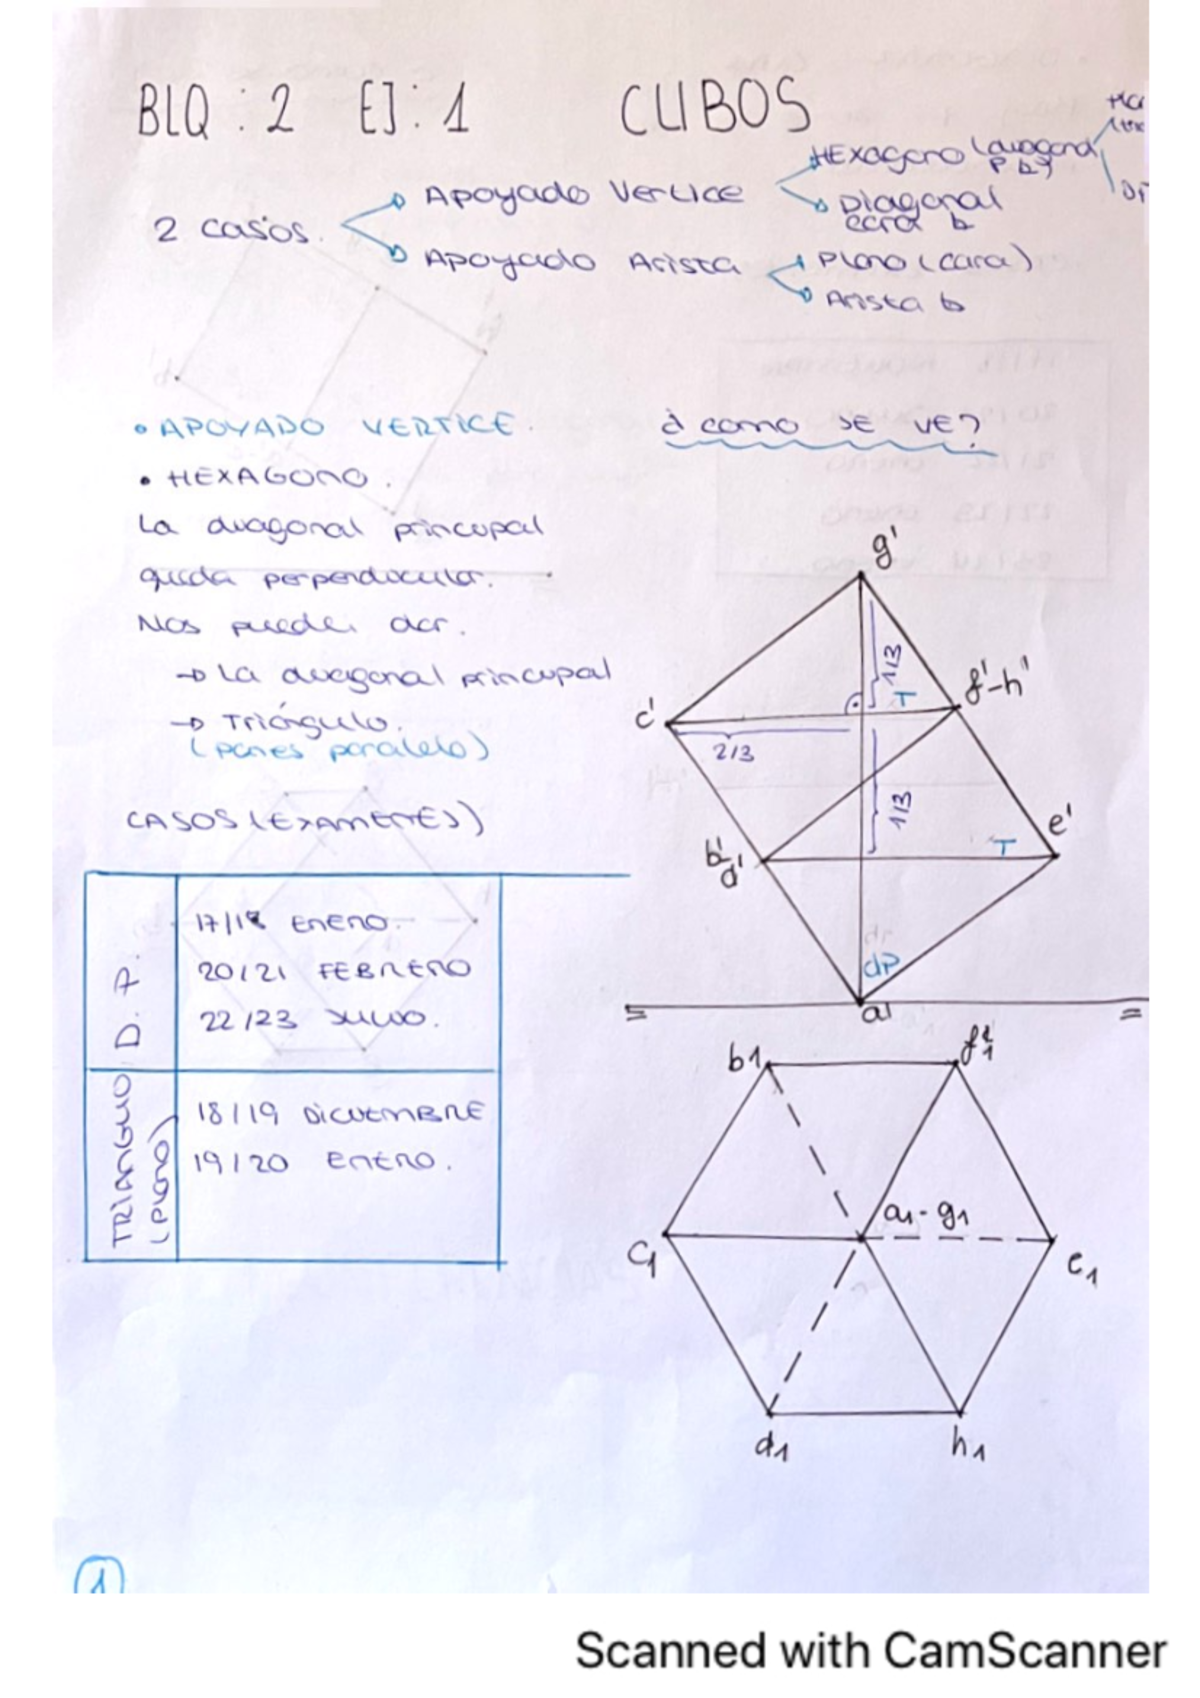 BLQ : 2 EJ : 1 CUBOS
2 casos.
Apoyado Vertice
HExagono (diagonal
P b)
Diagonal
cara b
Apoyado Arista
Plano (cara)
Arista b
• APOYADO VERTICE.
¿como SE VE?
• HEXAGONO.
La diagonal principal
queda perpendicular.
Nos pueden dar.
→ La diagonal principal
→ Triángulo.
(planes paralelo)
CASOS (EXAMENES)
D. P.
17/18 ENERO.
20/21 FEBRERO
22/23 JULIO.
TRIANGULO
(plano)
18/19 DICIEMBRE
19/20 ENERO.
g'
1/3
f'-h'
T
c'
2/3
1/3
b'
d'
e'
T
dp
a'
=
=
b1
f1
a1-g1
c1
e1
d1
h1
1
Scanned with CamScanner